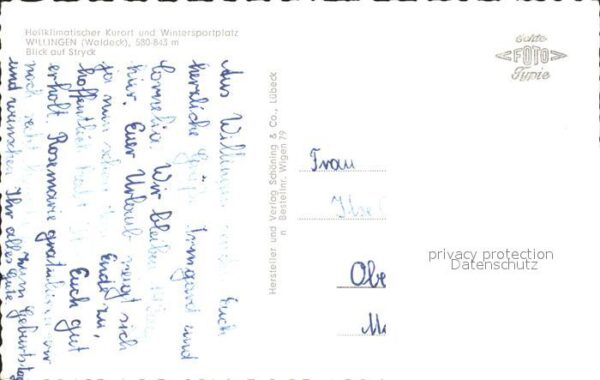 Heilklimatischer Kurort und Wintersportplatz
WILLINGEN (Waldeck), 580-843 m
Blick auf Stryck
Echte
FOTO
Typie
Aus Willingen Euch
herzliche Grüße Irmgard und
Cornelia. Wir bleiben
hier. Euer Urlaub neigt sich
ja nun schon dem Ende zu,
hoffentlich habt Ihr Euch gut
erholt. Rosemarie gratulieren wir
noch recht zum Geburtstag
und wünschen Ihr alles Gute
Hersteller und Verlag Schöning & Co., Lübeck
n Bestellnr. Wigen 79
Frau
Ilse
Obe
privacy protection
Datenschutz